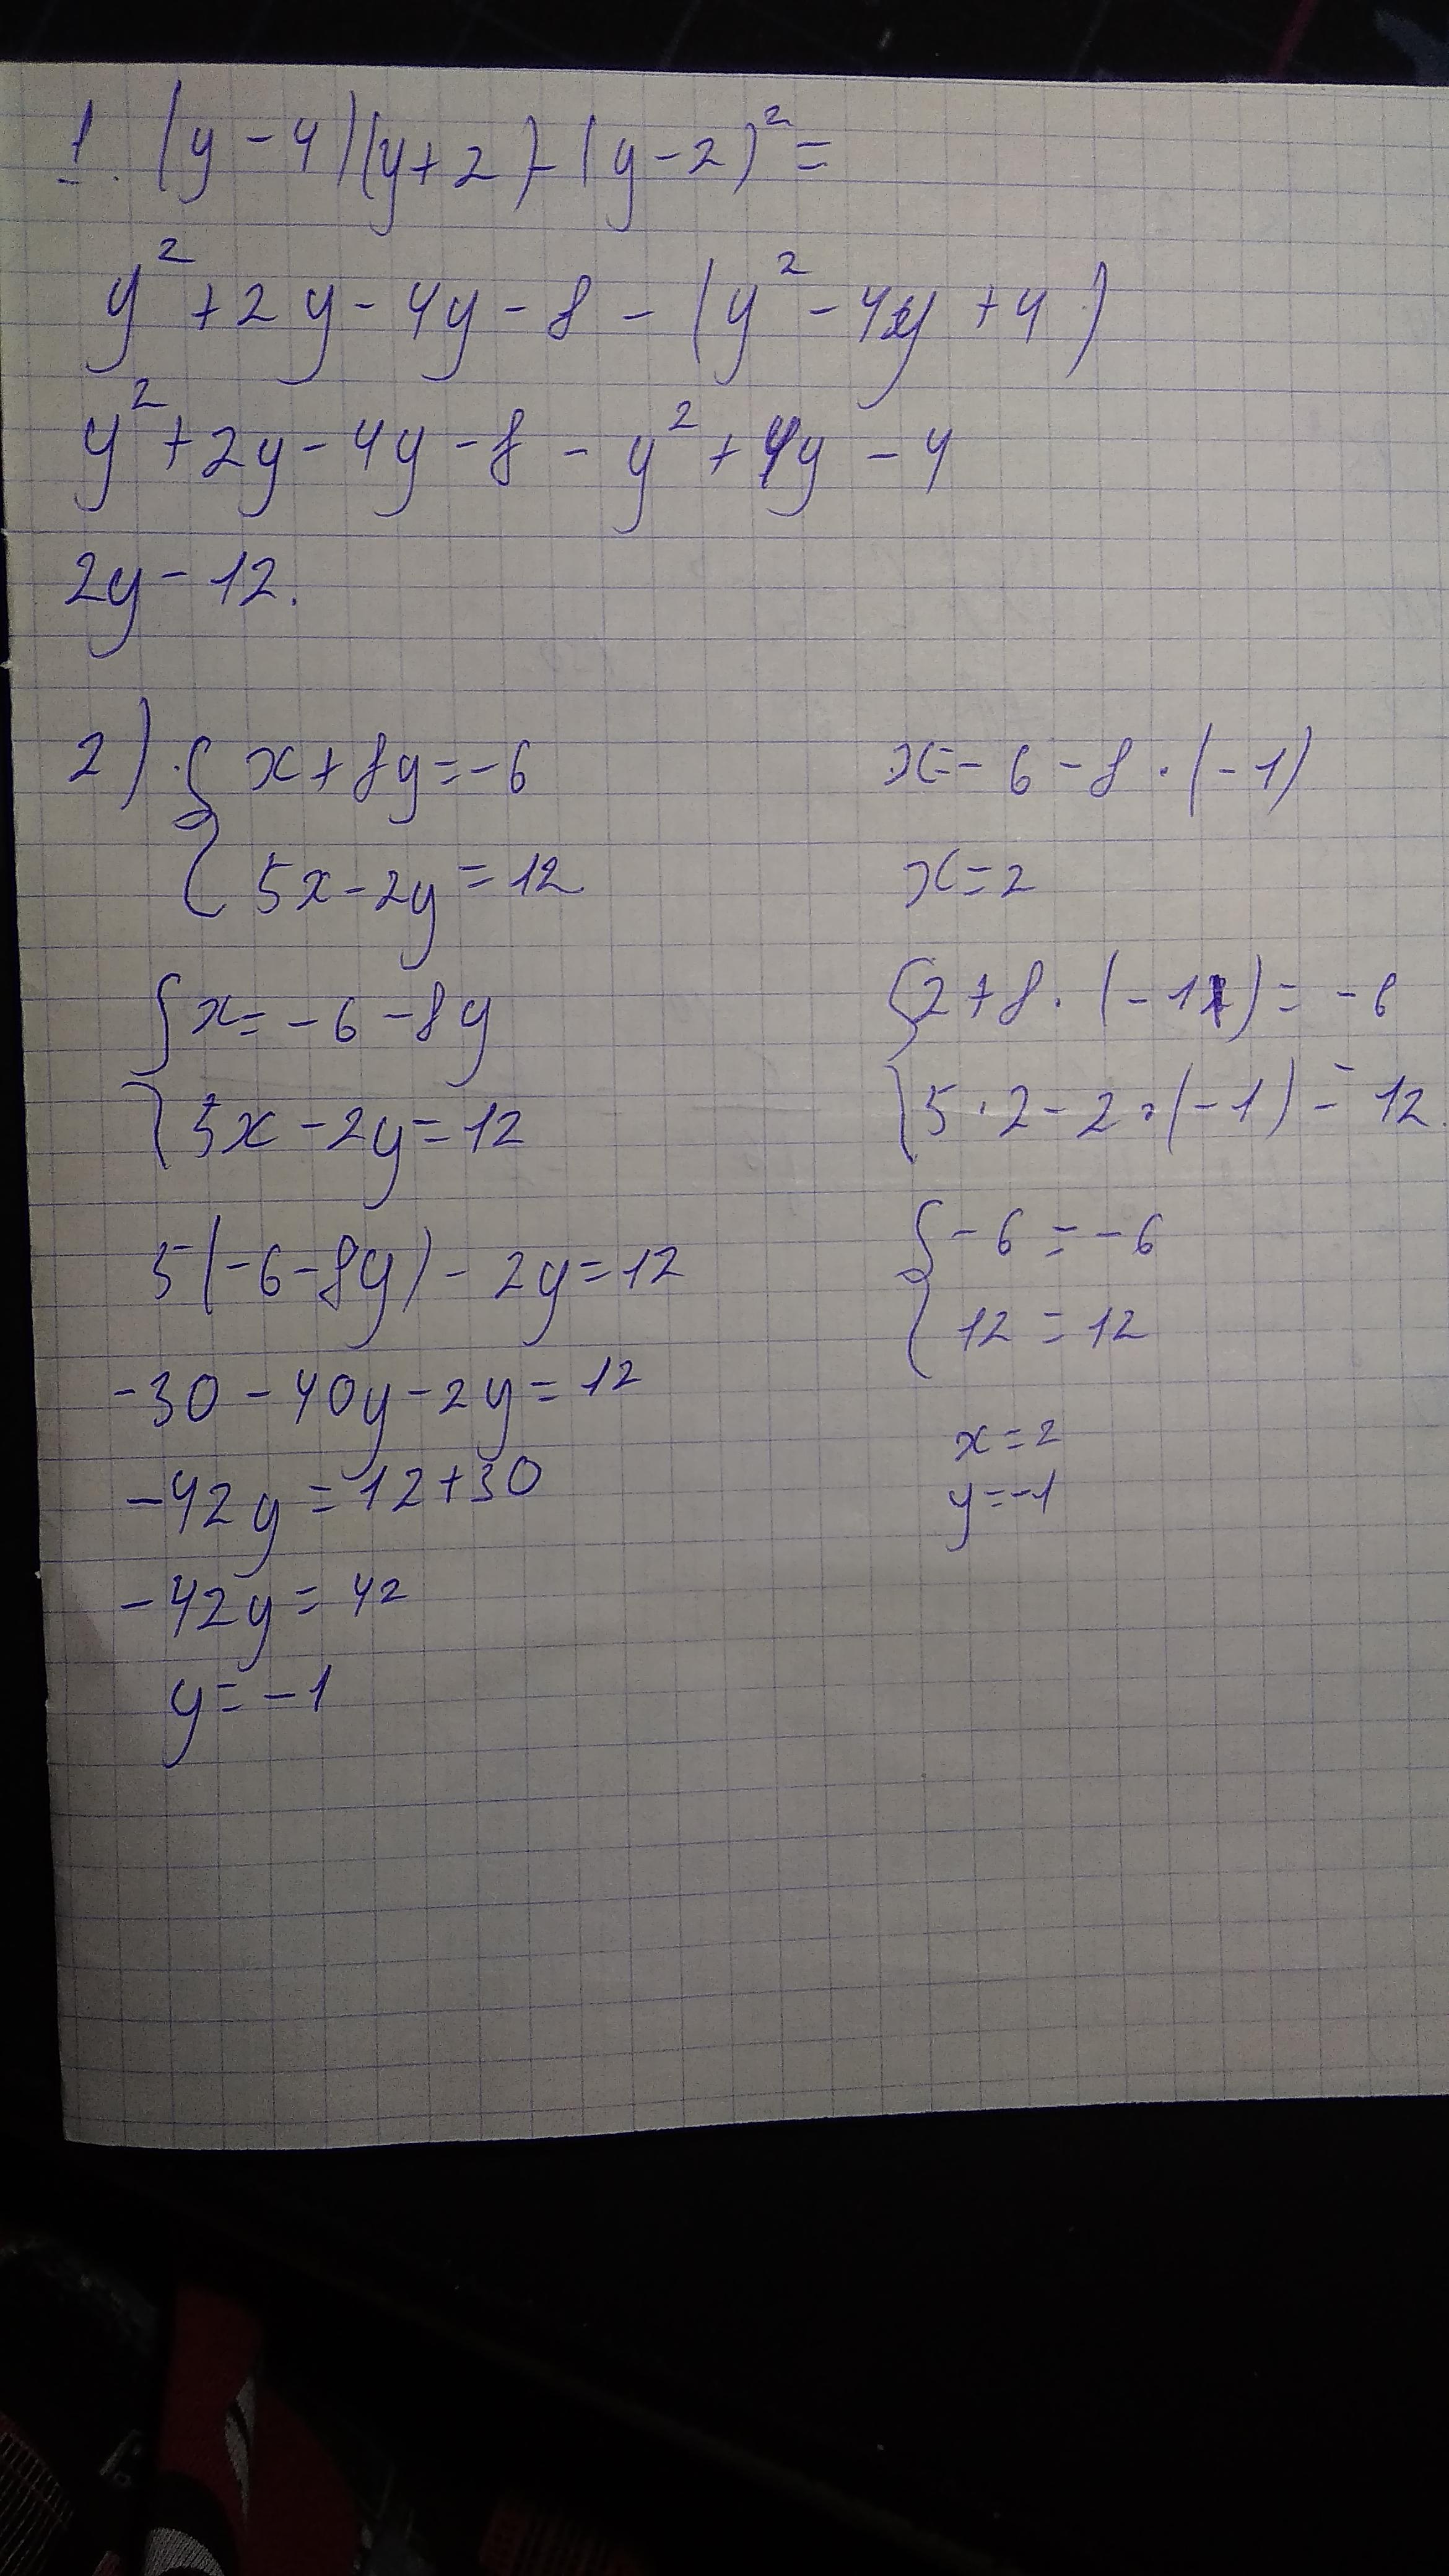 1. (y-4)(y+2)-(y-2)²=
y²+2y-4y-8-(y²-4y+4)
y²+2y-4y-8-y²+4y-4
2y-12.
2) { x+8y=-6
5x-2y=12
{ x=-6-8y
5x-2y=12
5(-6-8y)-2y=12
-30-40y-2y=12
-42y=12+30
-42y=42
y=-1
x=-6-8·(-1)
x=2
{ 2+8·(-1)=-6
5·2-2·(-1)=12.
{ -6=-6
12=12
x=2
y=-1